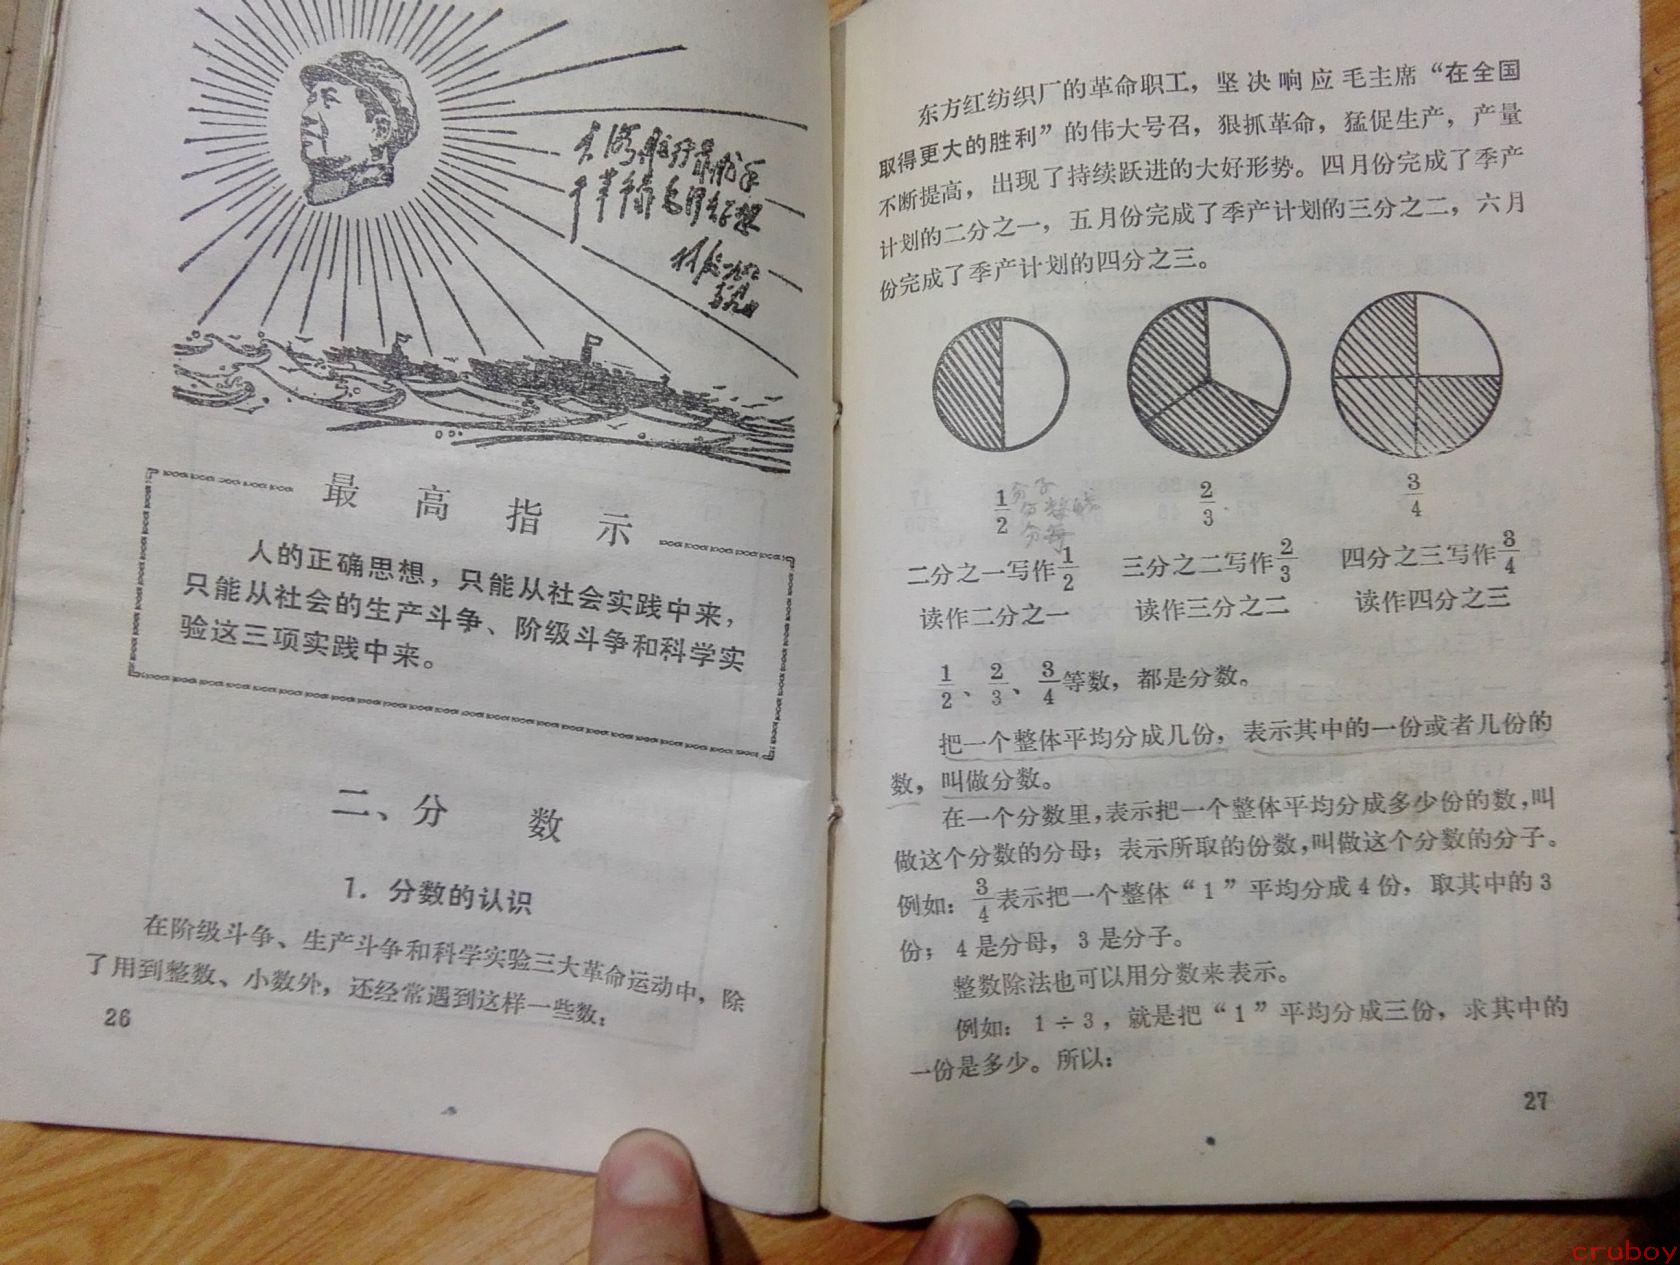 大海航行靠舵手
干革命靠毛泽东思想
林彪
最高指示
人的正确思想，只能从社会实践中来，
只能从社会的生产斗争、阶级斗争和科学实
验这三项实践中来。
二、分 数
1. 分数的认识
在阶级斗争、生产斗争和科学实验三大革命运动中，除
了用到整数、小数外，还经常遇到这样一些数：
26
东方红纺织厂的革命职工，坚决响应毛主席“在全国
取得更大的胜利”的伟大号召，狠抓革命，猛促生产，产量
不断提高，出现了持续跃进的大好形势。四月份完成了季产
计划的二分之一，五月份完成了季产计划的三分之二，六月
份完成了季产计划的四分之三。
1/2 分子 分数线 分母 2/3 3/4
二分之一写作1/2 三分之二写作2/3 四分之三写作3/4
读作二分之一 读作三分之二 读作四分之三
1/2、2/3、3/4等数，都是分数。
把一个整体平均分成几份，表示其中的一份或者几份的
数，叫做分数。
在一个分数里，表示把一个整体平均分成多少份的数，叫
做这个分数的分母；表示所取的份数，叫做这个分数的分子。
例如：3/4表示把一个整体“1”平均分成4份，取其中的3
份；4是分母，3是分子。
整数除法也可以用分数来表示。
例如：1÷3，就是把“1”平均分成三份，求其中的
一份是多少。所以：
27
cruboy